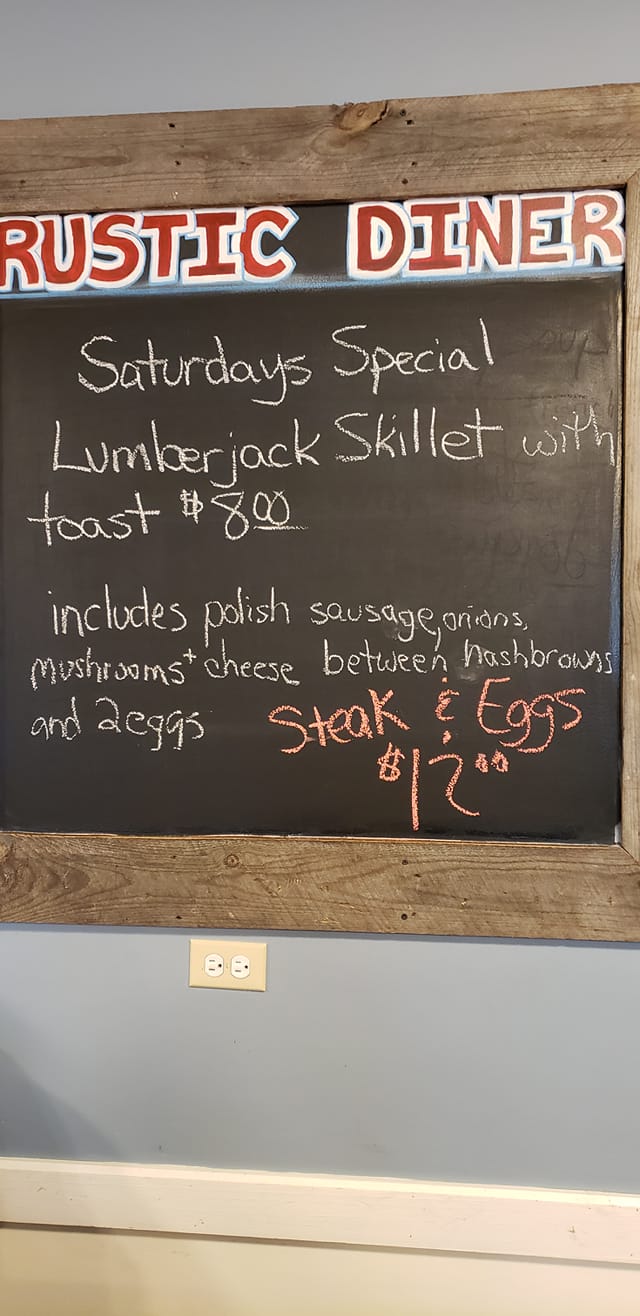 RUSTIC DINER
Saturdays Special
Lumberjack Skillet with
toast $8.00
includes polish sausage, onions,
mushrooms + cheese between hashbrowns
and 2 eggs
Steak & Eggs
$12.00